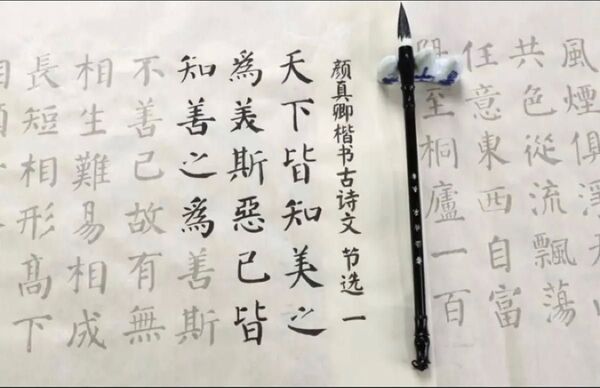 風煙俱淨天山
共色從流飄蕩
任意東西自富
陽至桐廬一百
颜真卿楷书古诗文 节选一
天下皆知美之
為美斯惡已皆
知善之為善斯
不善已故有無
相生難易相成
長短相形高下
相